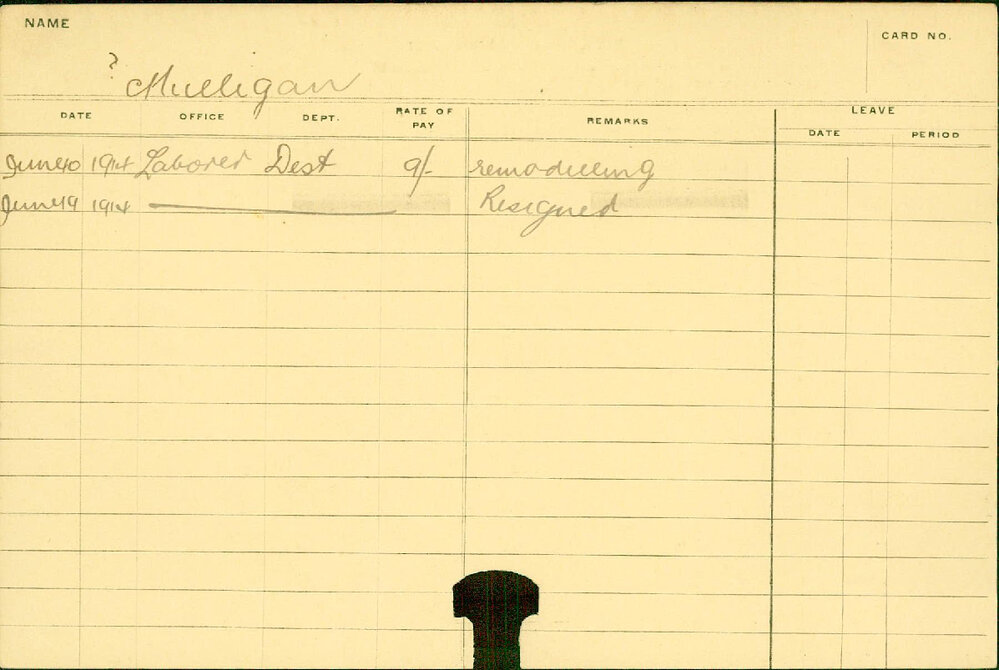 NAME
CARD NO.
? Mulligan
DATE OFFICE DEPT. RATE OF PAY REMARKS LEAVE
DATE PERIOD
June 10 1914 Laborer Dest 9/- remodelling
June 19 1914 Resigned